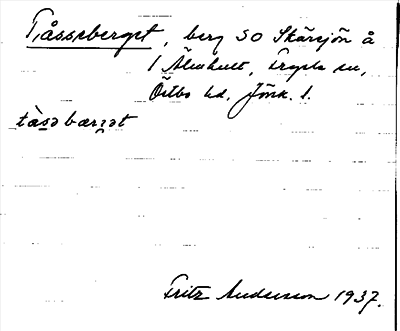 Tåsseberget, berg SO Skärsjön å
1 Älmhult, Tryserum sn,
Östbo hd, Jönk. l.
tàsə bærjət
Fritz Andersson 1937.